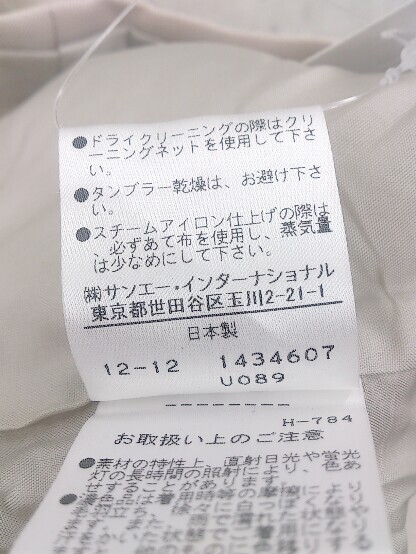 ●ドライクリーニングの際はクリ
ーニングネットを使用して下さ
い。
●タンブラー乾燥は、お避け下さ
い。
●スチームアイロン仕上げの際は
、必ずあて布を使用し、蒸気量
は少なめにして下さい。
㈱サンエー・インターナショナル
東京都世田谷区玉川2-21-1
日本製
12-12 1434607
U089
--------
H-784
お取扱い上のご注意
●素材の特性上、直射日光や蛍光
灯の長時間の照射により、色あ